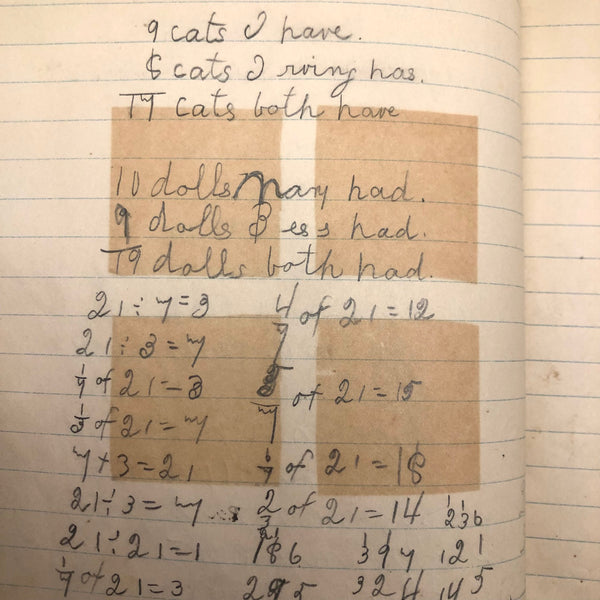 9 cats I have.
8 cats Irving has.
17 cats both have
10 dolls Mary had.
9 dolls Bess had.
19 dolls both had.
21÷7=3
4/7 of 21=12
21÷3=7
1/7 of 21=3
5/7 of 21=15
1/3 of 21=7
7×3=21
6/7 of 21=18
21÷3=7
2/3 of 21=14
236
21÷21=1
186
397
121
1/7 of 21=3
295
324
145